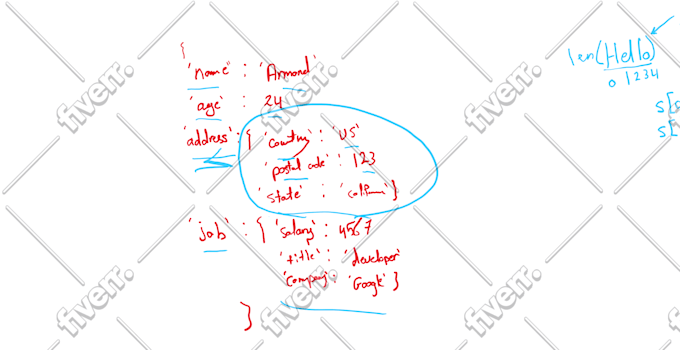 {
'name' : 'Armond'
'age' : 24
'address' : { 'country' : 'US'
'postal code' : 123
'state' : }
'job' : { 'salary' : 4567
'title' : 'developer'
'company' : 'Google' }
}
len(Hello)
0 1 2 3 4
s[
s[
fiverr.
fiverr.
fiverr.
fiverr.
fiverr.
fiverr.
fiverr.
fiverr.
fiverr.
fiverr.
fiverr.
fiverr.